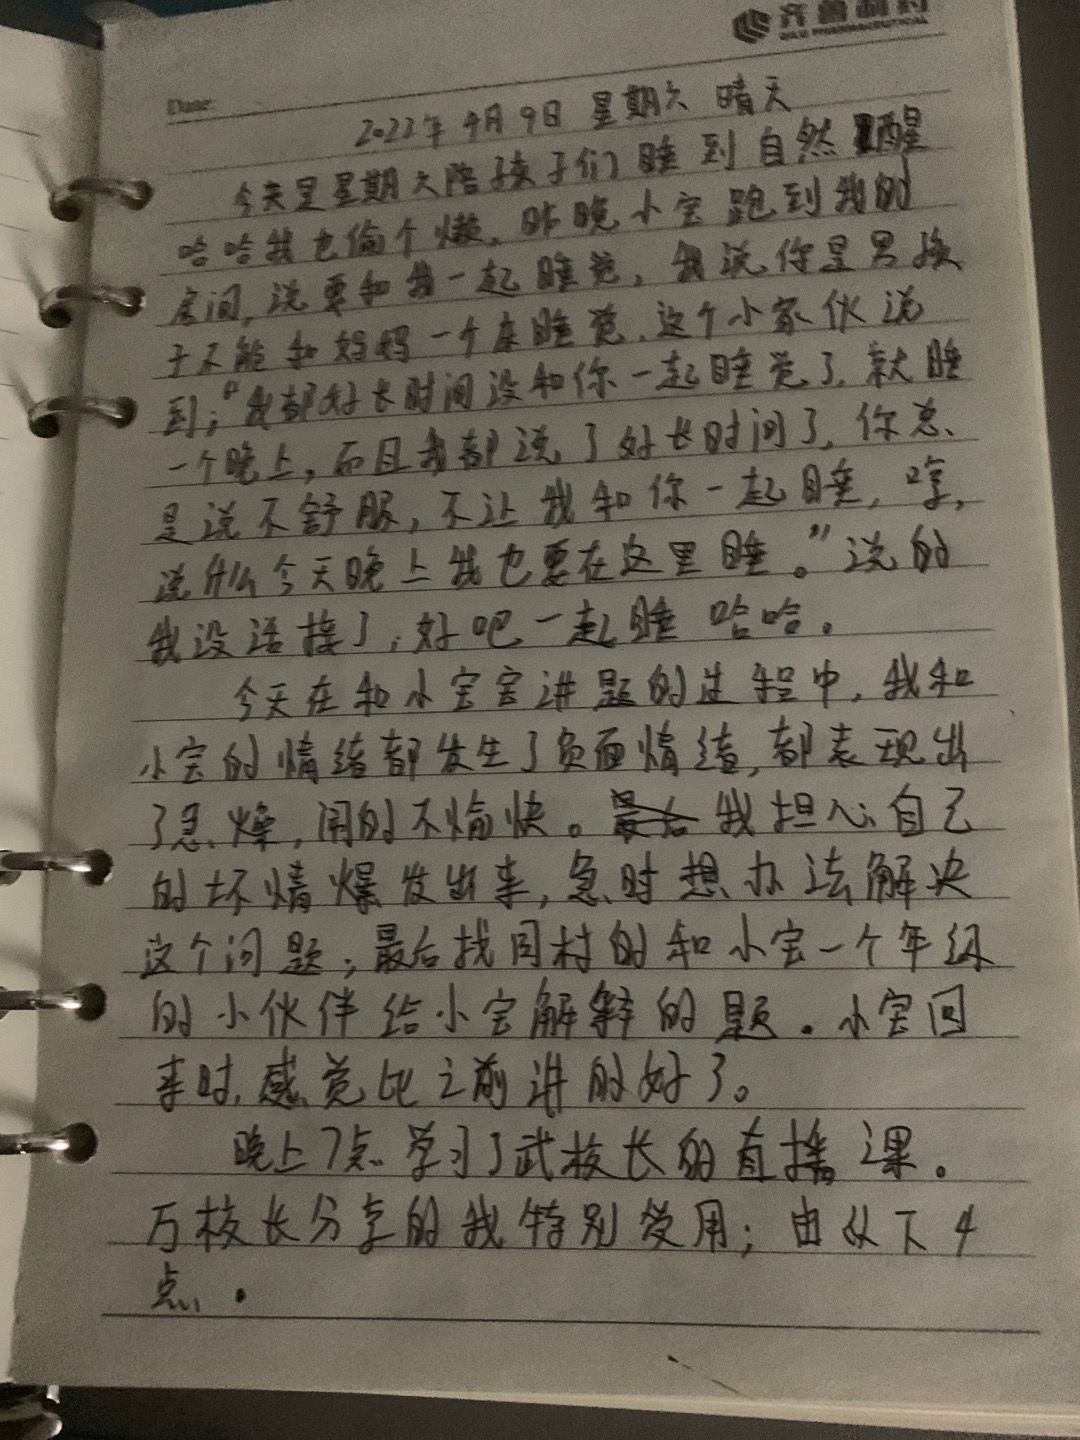 齐鲁制药
QILU PHARMACEUTICAL
Date:
2022年4月9日 星期六 晴天
今天是星期六陪孩子们睡到自然醒
哈哈我也偷个懒。昨晚小宝跑到我的
房间，说要和我一起睡觉，我说你是男孩
子不能和妈妈一个床睡觉，这个小家伙说
到；“我都好长时间没和你一起睡觉了，就睡
一个晚上，而且我都说了好长时间了，你总
是说不舒服，不让我和你一起睡，哼，
说什么今天晚上我也要在这里睡。”说的
我没话接了，好吧一起睡 哈哈。
今天在和小宝宝讲题的过程中，我和
小宝的情绪都发生了负面情绪，都表现出
了急燥，闹的不愉快。我担心自己
的坏情爆发出来，急时想办法解决
这个问题；最后找同村的和小宝一个年级
的小伙伴给小宝解释的题。小宝回
来时，感觉比之前讲的好了。
晚上7点学习了武校长的直播课。
万校长分享的我特别受用；由以下4
点。